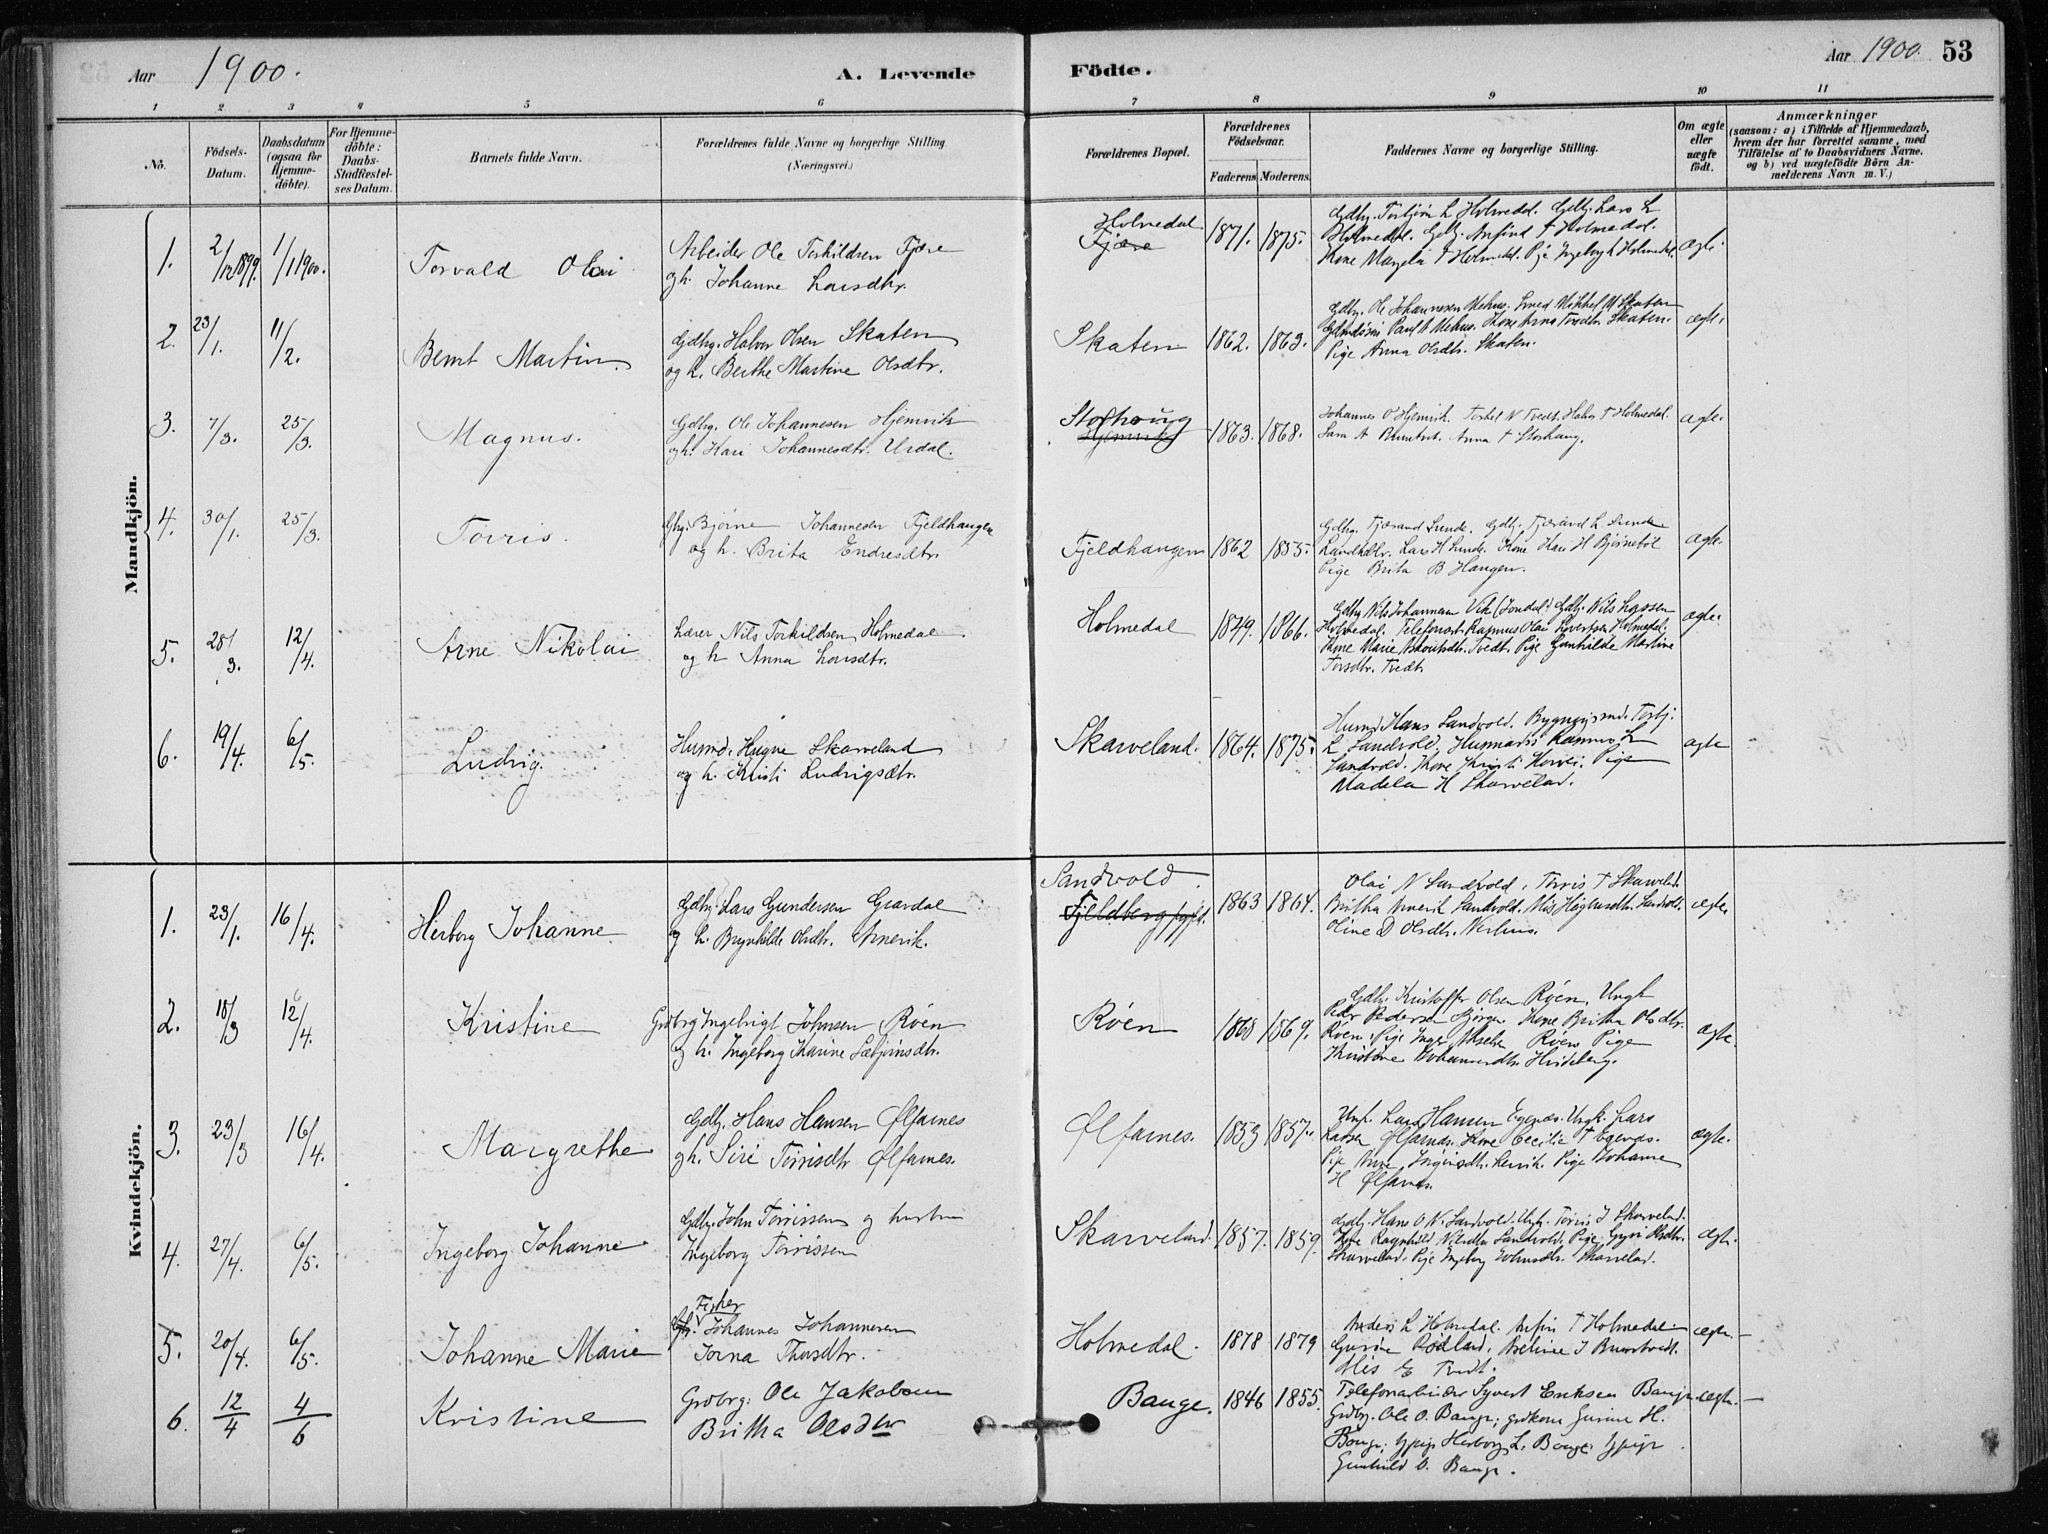 Aar 1900. A. Levende Födte. Aar 1900. 53
1 2 3 4 5 6 7 8 9 10 11
No. Födsels-Datum. Daabsdatum (ogsaa for Hjemme-döbte). For Hjemme-döbte: Daabs-Stadfæstel-ses Datum. Barnets fulde Navn. Forældrenes fulde Navne og borgerlige Stilling. (Næringsvei.) Forældrenes Bopæl. Forældrenes Födselsaar. Faderens Moderens. Faddernes Navne og borgerlige Stilling. Om ægte eller uægte födt. Anmærkninger
(saasom: a) i Tilfælde af Hjemmedaab,
hvem der har forrettet samme, med
Tilföielse af to Daabsvidners Navne.
og b) ved uægtefödte Börn An-
melderens Navn m. V.)
Mandkjön.
1. 2/12 1899. 1/1 1900. Torvald Olai
Arbeider Ole Torkildsen Fjære
og h. Johanne Larsdtr.
Holmedal
Fjære
1871. 1875.
Gdbg. Torbjörn L Holmedal. Gdbg. Lars L
Holmedal. Gdbg. Anfind T Holmedal.
Kone Margela T Holmedal. Pige Ingeborg L Holmedal.
ægte
2. 23/1. 11/2. Bernt Martin.
Gdbg. Halvor Olsen Skaten
og h. Berthe Martine Olsdtr.
Skaten 1862. 1863.
Gdbg. Ole Johannesen Mehus. Smed Mikkel M Skaten
Paul A Mehus. Kone Anna Skaten.
Pige Anna Olsdtr. Skaten.
ægte.
3. 7/3. 25/3. Magnus.
Gdbg. Ole Johannesen Hjemvik
og h. Kari Johannesdtr. Urdal.
Storhaug
Hjemvik
1863. 1868.
Johannes O Hjemvik. Torkel N Tvedt. Halvor T Holmedal.
Anna T Storhaug.
ægte.
4. 30/1. 25/3. Torris.
Gbg. Bjørne Johannesen Fjeldhaugen
og h. Brita Endresdtr.
Fjeldhaugen 1862 1855.
Gdbg. Tjærand Sunde. Gdbg. Tjærand L. Sunde
Lars H Sunde. Kone Kari H Bjørnebøl
Pige Brita B Haugen.
ægte.
5. 28/3. 12/4. Arne Nikolai
Lærer Nils Torkildsen Holmedal
og h Anna Larsdtr.
Holmedal 1849. 1866.
Gdbg Nils Johannesen Vik (Jondal) Gdbg. Nils Larssen
Holmedal. Telefonist Rasmus Olai Sivertsen Holmedal.
Kone Marie Tvedt. Pige Gunhilde Martine
Torsdtr. Tvedt
ægte.
6. 19/4. 6/5. Ludvig.
Husmd. Haagne Skarveland
og h. Kristi Ludvigsdtr.
Skarveland. 1864. 1875.
Husmd. Hans Sandvold. Bygningsmd. Torbj.
L Sandvold. Rasmus L
Sandvold. Kone Kristi Pige
Madela H Skarveland.
ægte
Kvindekjön.
1. 23/1. 16/4. Herborg Johanne.
Gdbg. Lars Gundersen Grærdal
og h. Brynhilde Olsdtr. Arnevik.
Sandvold.
Fjeldberg
1863 1864.
Olai N Sandvold, Torris T Skarveland.
Britha Arnevik Sandvold. Sandvold.
Oline O Olsdtr.
ægte.
2. 18/3 12/4. Kristine
Grdbrg Ingebrigt Johnsen Røen
og h. Ingeborg Karine
Røen 1868 1869.
Gdbg. Kristoffer Olsen Røen, Ungk
Peder Pedersen Bjørgen Kone Britha Olsdtr.
Røen. Pige Inger Røen Pige
Kristine
ægte.
3. 23/3 16/4. Margrethe
Gdbg. Hans Hansen Ølfarnes
og h. Siri Torrisdtr Ølfarnes.
Ølfarnes. 1853 1857.
Ungk. Lars Hansen Egenæs. Ungk. Lars
Larsen Ølfarnes. Kone Cecilie T Egenæs.
Pige Anne Pige Johanne
H Ølfarnes.
ægte.
4. 27/4. 6/5. Ingeborg Johanne
Gdbg. John Torrissen og hustru
Ingeborg Torrissen
Skarveland. 1857. 1859.
Gdbg. Hans O N. Sandvold. Ungk. Torris J Skarveland.
Kone Ragnhild Sandvold. Pige Guri Olsdtr.
Skarveland. Pige Ingeborg Johnsdtr. Skarveland.
ægte.
5. 20/4. 6/5. Johanne Marie
Fisker
Johannes Johannesen
Jorna Thorsdtr.
Holmedal. 1878 1879
Anders L Holmedal. Anfin T Holmedal.
Gurine Rødland. J Brunstvedt.
E Tvedt.
ægte.
6. 12/4 4/6 Kristine
Grdbrg: Ole Jakobsen
Britha Olsdtr
Bauge. 1846 1855.
Telefonarbeider Syvert Eriksen Bauge.
Grdbrg. Ole O. Bauge; grdkone Gurine H.
Bauge; Herborg L. Bauge;
Gunhild O. Bauge.
ægte.